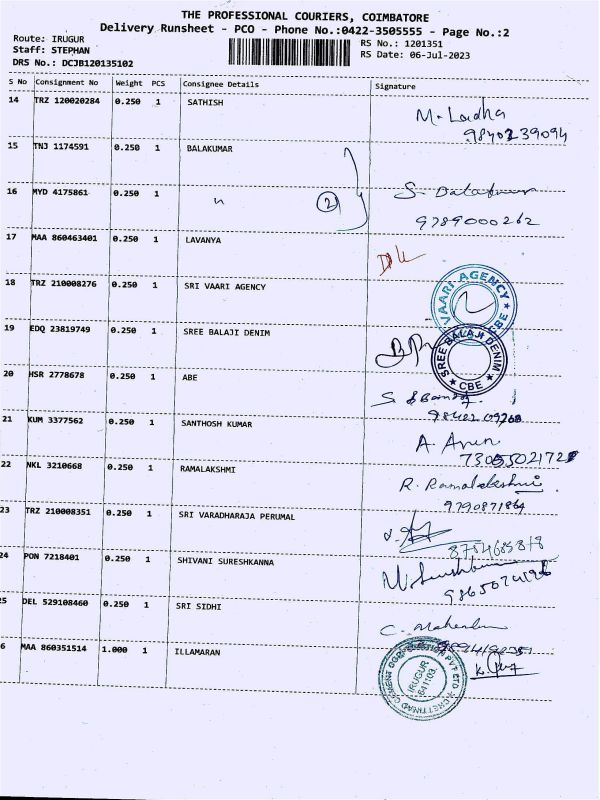 THE PROFESSIONAL COURIERS, COIMBATORE
Delivery Runsheet - PCO - Phone No.:0422-3505555 - Page No.:2
Route: IRUGUR
RS No.: 1201351
Staff: STEPHAN
RS Date: 06-Jul-2023
DRS No.: DCJB120135102
S No Consignment No Weight PCS Consignee Details Signature
14 TRZ 120020284 0.250 1 SATHISH M. Ladha
9840239094
15 TNJ 1174591 0.250 1 BALAKUMAR
16 MYD 4175861 0.250 1 " 2 S.
9789000262
17 MAA 860463401 0.250 1 LAVANYA
18 TRZ 210008276 0.250 1 SRI VAARI AGENCY VAARI AGENCY ★ CBE ★
19 EDQ 23819749 0.250 1 SREE BALAJI DENIM SREE BALAJI DENIM ★ CBE ★
20 HSR 2778678 0.250 1 ABE S
21 KUM 3377562 0.250 1 SANTHOSH KUMAR A. Arun
22 NKL 3210668 0.250 1 RAMALAKSHMI R. Ramalakshmi.
9790871864
23 TRZ 210008351 0.250 1 SRI VARADHARAJA PERUMAL
24 PON 7218401 0.250 1 SHIVANI SURESHKANNA
25 DEL 529108460 0.250 1 SRI SIDHI C.
6 MAA 860351514 1.000 1 ILLAMARAN IRUGUR
641103.